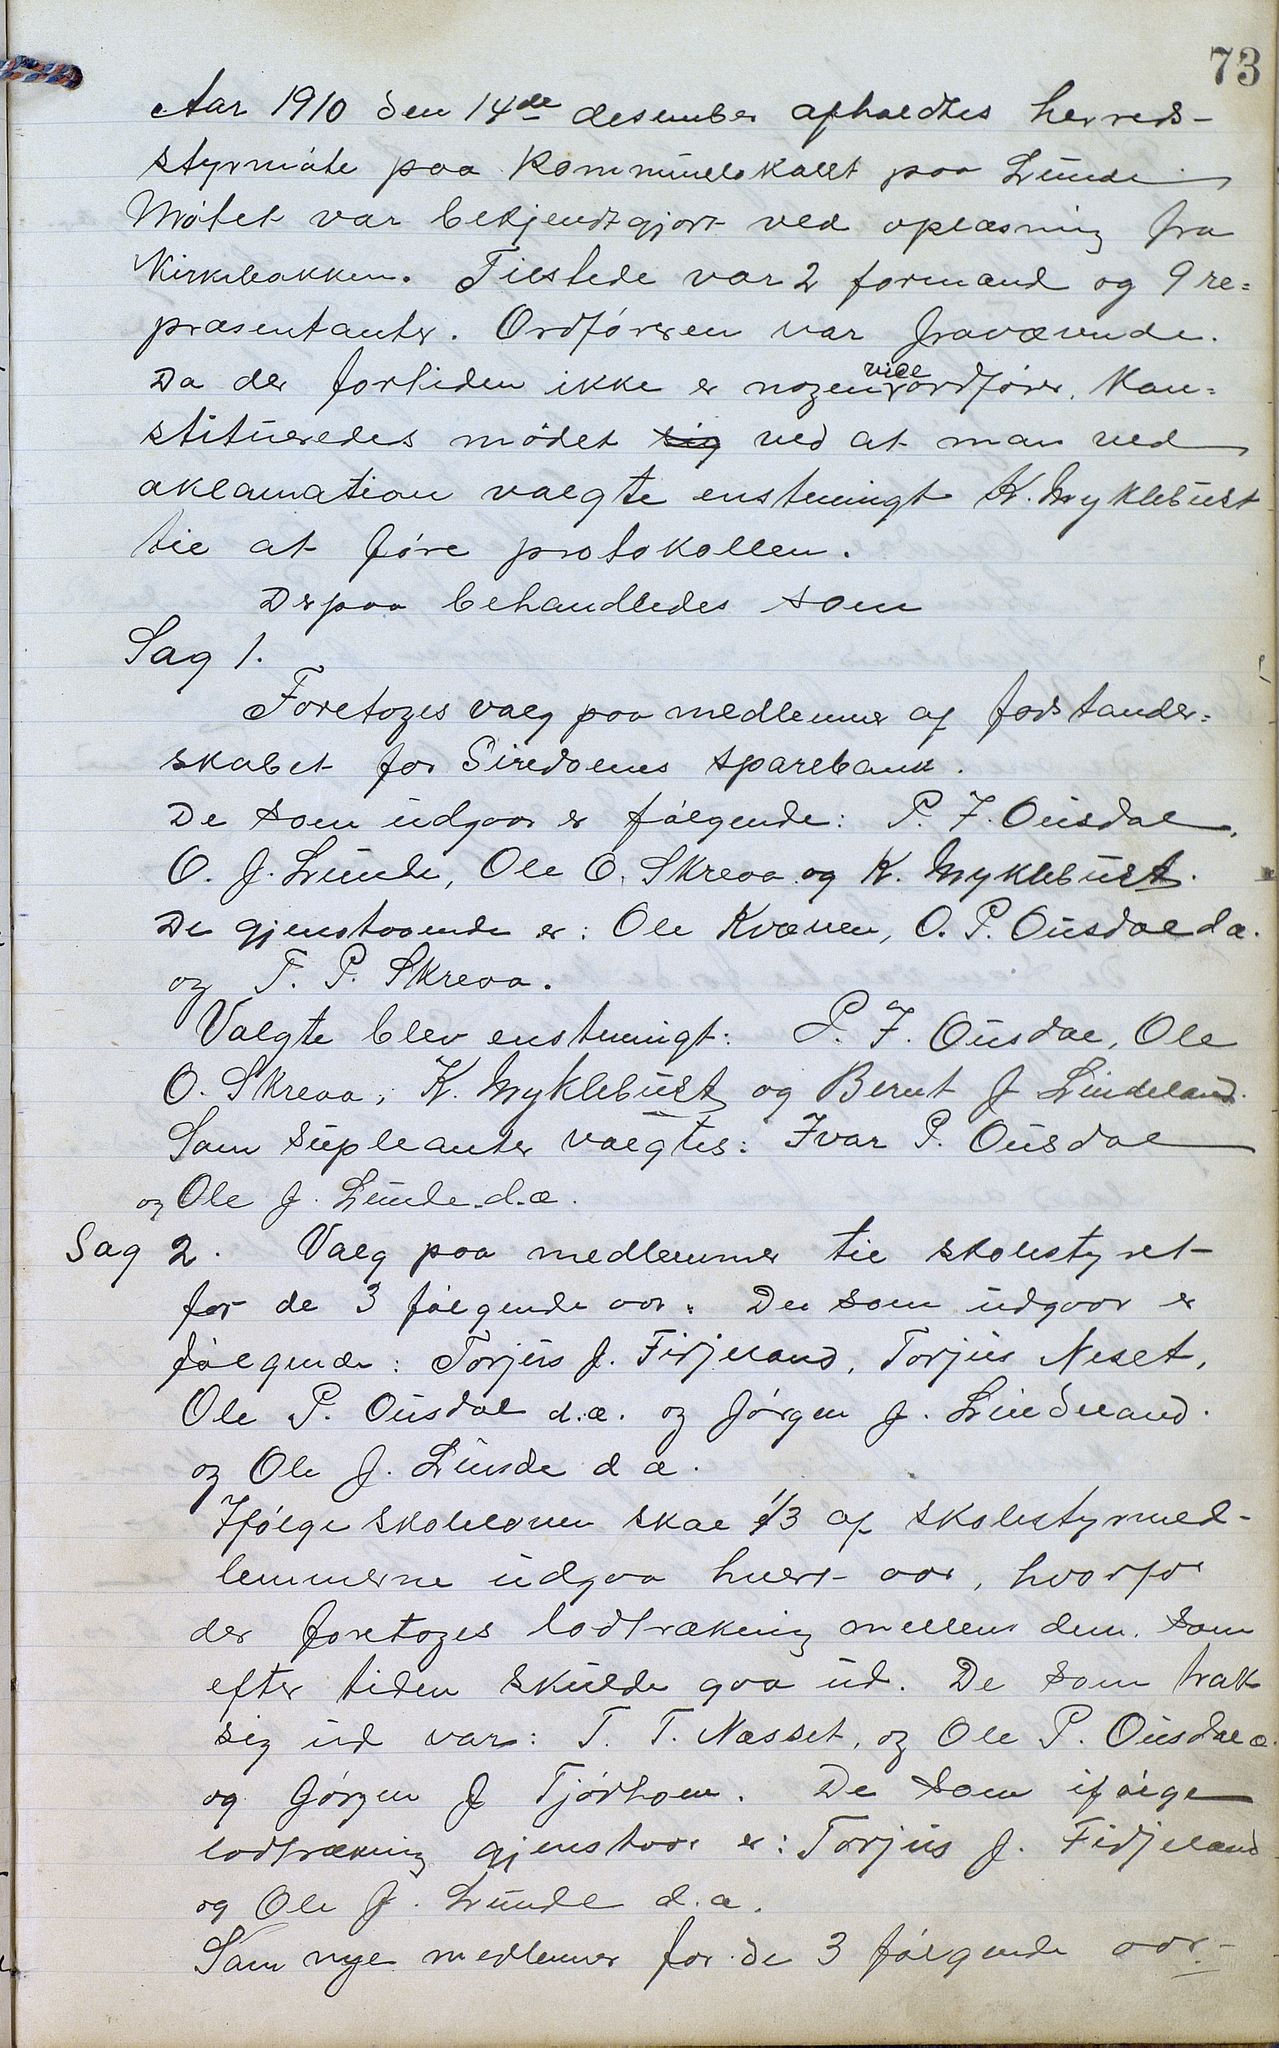 73
Aar 1910 den 14de desember afholdtes herreds-
styrmöte paa Kommunelokalet paa Lunde
Mötet var bekjendtgjort ved oplæsning fra
Kirkebakken. Tilstede var 2 formænd og 9 re=
præsentanter. Ordföreren var fraværende.
Da der fortiden ikke er nogen viceordförer, kon=
stitueredes mödet sig ved at man ved
aklamation valgte enstemmigt K. Myklebust
til at före protokollen.
Derpaa behandledes som
Sag 1.
Foretoges valg paa medlemmer af forstander=
skabet for Siredalens sparebank.
De som udgaar er følgende: P. F. Ousdal,
O. J. Lunde, Ole O. Skreaa og K. Myklebust.
De gjenstaaende er: Ole Kvæven, O. P. Ousdal d.æ.
og T. P. Skreaa.
Valgte blev enstemmigt: P. F. Ousdal, Ole
O. Skreaa, K. Myklebust og Bernt J Lindeland.
Som supleanter valgtes: Ivar P. Ousdal
og Ole J. Lunde d.æ.
Sag 2. Valg paa medlemmer til skolestyret
for de 3 følgende aar. De som udgaar er
følgende: Torjus J. Fidjeland, Torjus Neset,
Ole P. Ousdal d.æ. og Jørgen J. Lindeland.
og Ole J. Lunde d æ.
Ifølge skoleloven skal 1/3 af skolestyrmed-
lemmerne udgaa hvert aar, hvorfor
der foretoges lodtrækning mellem dem som
efter tiden skulde gaa ud. De som trak
sig ud var: T. T. Næsset, og Ole P. Ousdal æ.
og Gørgen J Tjørhom. De som ifølge
lodtrækning gjenstaar er: Torjus J. Fidjeland
og Ole J. Lunde d.æ.
Som nye medlemer for de 3 følgende aar